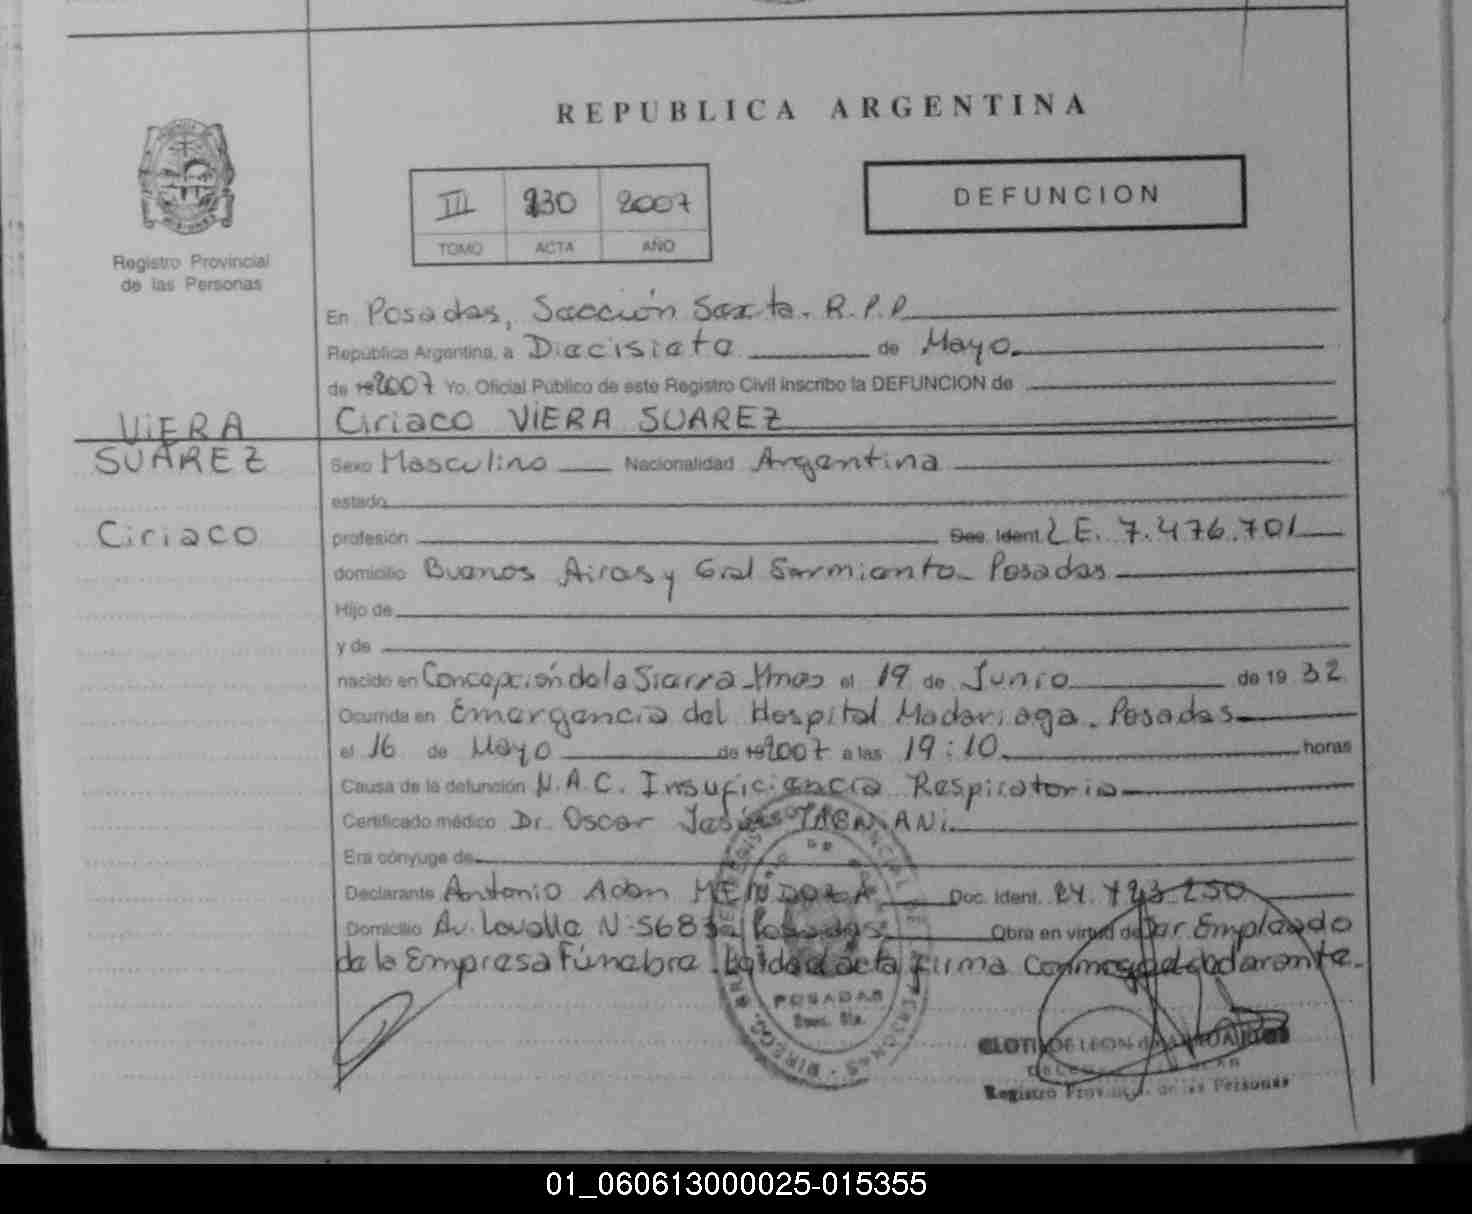 REPUBLICA ARGENTINA
III 230 2007
TOMO ACTA AÑO
DEFUNCION
Registro Provincial
de las Personas
En Posadas, Sección Sexta. R.P.P.
República Argentina, a Diecisiete de Mayo
de 19 2007 Yo, Oficial Público de este Registro Civil inscribo la DEFUNCION de
Ciriaco VIERA SUAREZ
VIERA
SUAREZ
Ciriaco
Sexo Masculino Nacionalidad Argentina
estado
profesión Doc. Ident. L.E. 7.476.701
domicilio Buenos Aires y Gral Sarmiento - Posadas
Hijo de
y de
nacido en Concepción de la Sierra - Mnes el 19 de Junio de 19 32
Ocurrida en Emergencia del Hospital Madariaga. Posadas
el 16 de Mayo de 19 2007 a las 19:10 horas
Causa de la defunción N.A.C. Insuficiencia Respiratoria
Certificado médico Dr. Oscar
Era cónyuge de
Declarante Antonio Adan MENDOZA Doc. Ident. 24. 250
Domicilio Av. Lavalle N. 5683 Posadas Obra en virtud de Ser Empleado
de la Empresa Fúnebre. Leída el acta firma conmigo el declarante.
POSADAS
Secc. 6ta.
Registro Provincial de las Personas
01_060613000025-015355